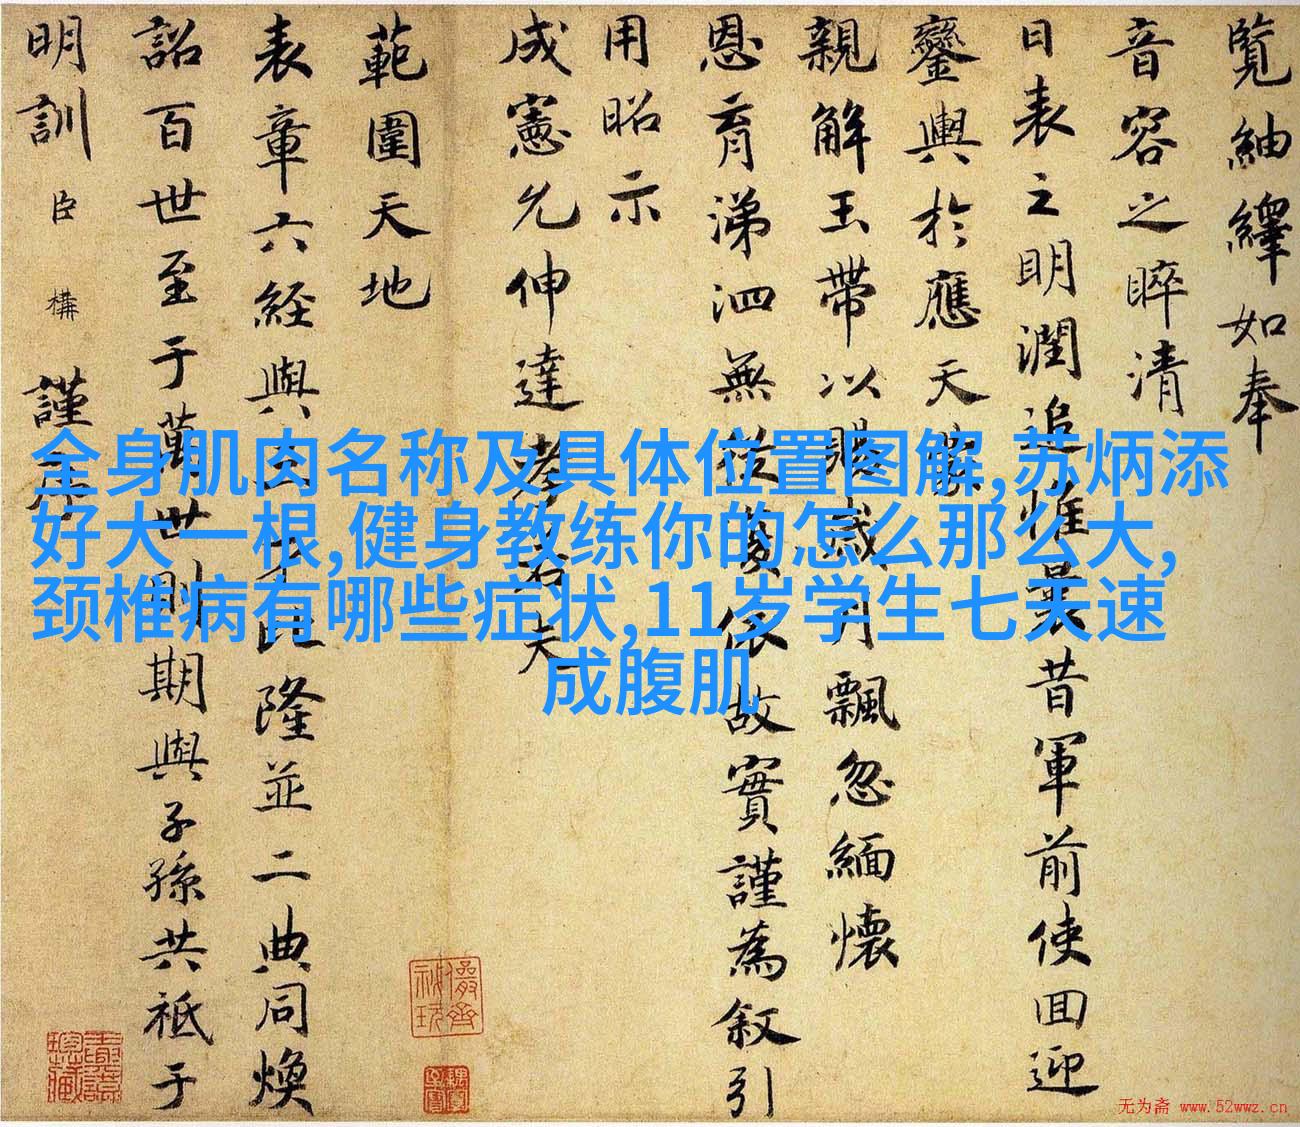 覽紬繹如奉
音容之睟清
日表之明潤追惟曩昔軍前使回迎
鑾輿於應天
親解玉帶以賜歲月飄忽緬懷
恩育涕泗無從依故實謹為叙引
用昭示
成憲允伸達孝若夫
範圍天地
表章六經與夫比隆並二典同煥
詔百世至于萬世則期與子孫共祗于
明訓臣構謹序
全身肌肉名称及具体位置图解,苏炳添
好大一根,健身教练你的怎么那么大,
颈椎病有哪些症状,11岁学生七天速
成腹肌
无为斋 www.52wwz.cn